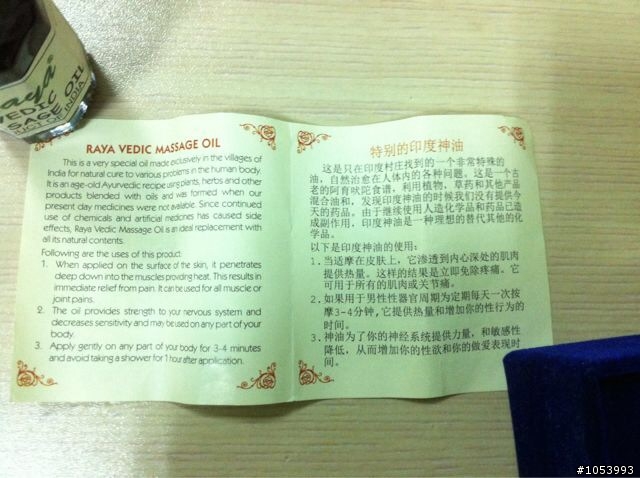 aya
VEDIC
SAGE OIL
INDIA
RAYA VEDIC MASSAGE OIL
This is a very special oil made exclusively in the villages of
India for natural cure to various problems in the human body.
It is an age-old Ayurvedic recipe using plants, herbs and other
products blended with oils and was formed when our
present day medicines were not available. Since continued
use of chemicals and artificial medicines has caused side
effects, Raya Vedic Massage Oil is an ideal replacement with
all its natural contents.
Following are the uses of this product:
1. When applied on the surface of the skin, it penetrates
deep down into the muscles providing heat. This results in
immediate relief from pain. It can be used for all muscle or
joint pains.
2. The oil provides strength to your nervous system and
decreases sensitivity and may be used on any part of your
body.
3. Apply gently on any part of your body for 3-4 minutes
and avoid taking a shower for 1 hour after application.
特别的印度神油
这是只在印度村庄找到的一个非常特殊的
油，自然治愈在人体内的各种问题。这是一个古
老的阿育吠陀食谱，利用植物，草药和其他产品
混合油和，发现印度神油的时候我们没有提供今
天的药品。由于继续使用人造化学品和药品已造
成副作用，印度神油是一种理想的替代其他的化
学品。
以下是印度神油的使用：
1.当适摩在皮肤上，它渗透到内心深处的肌肉
提供热量。这样的结果是立即免除疼痛。它
可用于所有的肌肉或关节痛。
2.如果用于男性性器官周期为定期每天一次按
摩3-4分钟,它提供热量和增加你的性行为的
时间。
3.神油为了你的神经系统提供力量，和敏感性
降低，从而增加你的性欲和你的做爱表现时
间。
#1053993